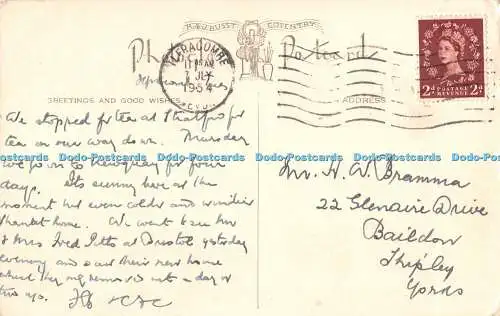 H. & J. BUSST COVENTRY
Postcard
ILFRACOMBE
JLY
1954
DEVON
2D POSTAGE REVENUE 2D
GREETINGS AND GOOD WISHES
ADDRESS
We stopped for tea at Stratford for
tea on our way down. Thursday
Dodo-Postcards Dodo-Postcards Dodo-Postcards Dodo-Postcards Dodo-Postcards Dodo-Postcards
we go on to Newquay for four
days. Its sunny here at the
moment but even colder and windier
than at home. We went to see Mr
& Mrs Fred Pitts at Bristol yesterday
Dodo-Postcards Dodo-Postcards Dodo-Postcards Dodo-Postcards Dodo-Postcards Dodo-Postcards
evening and saw their new house
which they removed into a day or
two ago.
Mr. H. W. Bramma
22 Glenaire Drive
Baildon
Shipley
Yorks